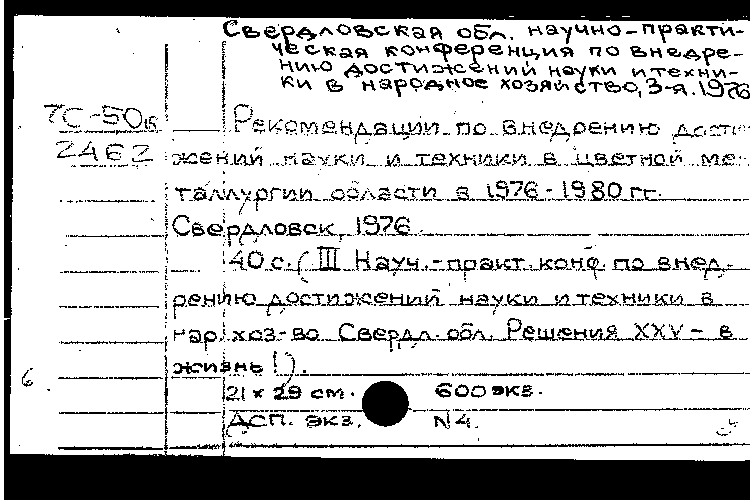 Свердловская обл. научно-практи-
ческая конференция по внедре-
нию достижений науки и техни-
ки в народное хозяйство, 3-я. 1976
7С-50
Рекомендации по внедрению дости
2462
жений науки и техники в цветной ме-
таллургии области в 1976-1980 гг.
Свердловск, 1976.
40 с. (III Науч.-практ. конф. по внед-
рению достижений науки и техники в
нар. хоз-во Свердл. обл. Решения XXV - в
жизнь!).
6.
21 х 29 см. 600 экз.
ДСП. экз. N4.